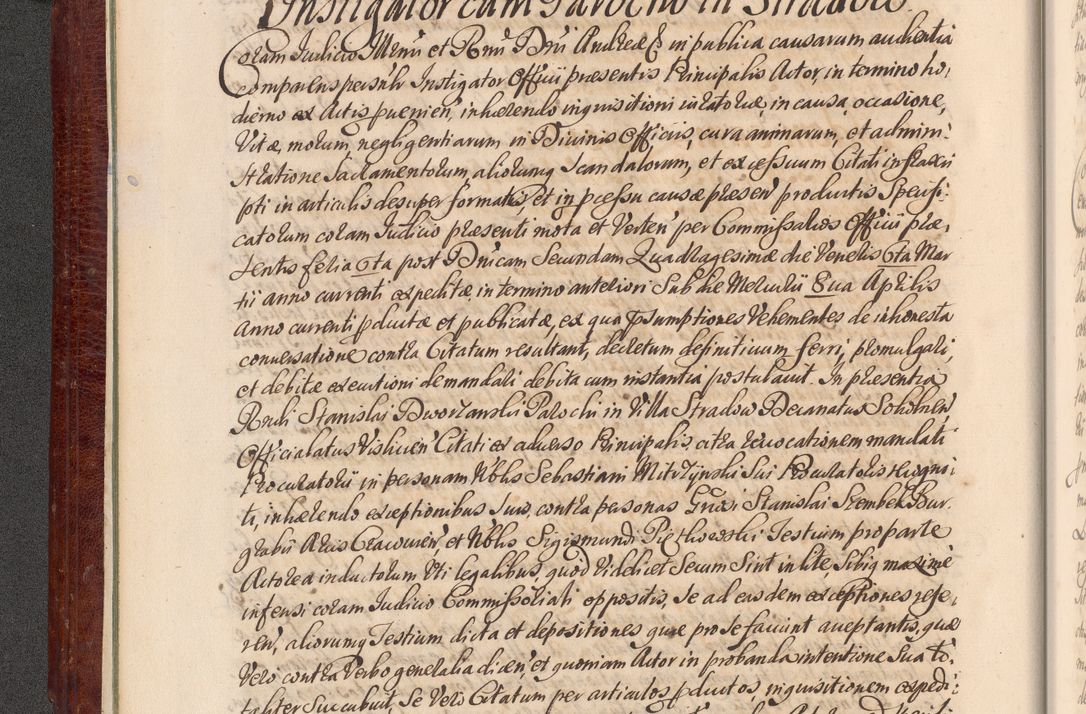 Instigator cum Parocho in Stradow
Coram Iudicio Illrmi et Rnmi Dni Andreae & in publica causarum audientia
Comparens personlr Instigator Officii praesentis Principalis Actor, in termino ho,
dierno ex Actis pvenien, inhaerendo inquisitioni iuratoriae, in causa, occasione,
Vitae, morum, negligentiarum in Divinis Officiis, cura animarum, et admini:
stratione Sacramentorum, aliorumq Scandalorum, et excessuum Citati infrascri
pti in articulis desuper formatis, et in pcessu causae praesen productis Specifi:
catorum coram Iudicio praesenti mota et Verten per Commissarios Officii prae,
sentis feria 6ta post Dnicam Secundam Quadragesimae die Veneris 6ta Mar
tii anno currenti expeditae, in termino anteriori Sub die Mercurii 8va Aprilis
anno currenti pductae et publicatae, ex qua psumptiones Vehementes de inhonesta
conversatione contra Citatum resultant, decretum definitivum ferri, promulgari,
et debitae executioni demandari debita cum instantia postulavit. In praesentia
Rndi Stanislai Dworzanski Parochi in Villa Stradow Decanatus Sokolnen,
Officialatus Vislicien Citati ex adverso Principalis citra revocationem mandati
Procuratorii in personam Nblis Sebastiani Mitrzynski Sui Procuratoris
ti, inhaerendo exceptionibus Suis, contra personas Grosi Stanislai Szembek Bur.
grabii Arcis Cracovien, et Nblis Sigismundi Testium pro parte
Actorea inductorum Uti legalibus, quod Videlicet Secum Sint in lite, Sibiq maxime
infensi coram Iudicio Commissoriali oppositis, Se ad easdem exceptiones refe,
ren, aliorumq Testium dicta et depositiones quae pro Se faciunt aceptantis, quae
Vero contra Verbo generalia dicen, et quoniam Actor in probanda intentione Sua to:
taliter Succubuit, Se Vero Citatum per articulos pductos, inquisitionem expedi: